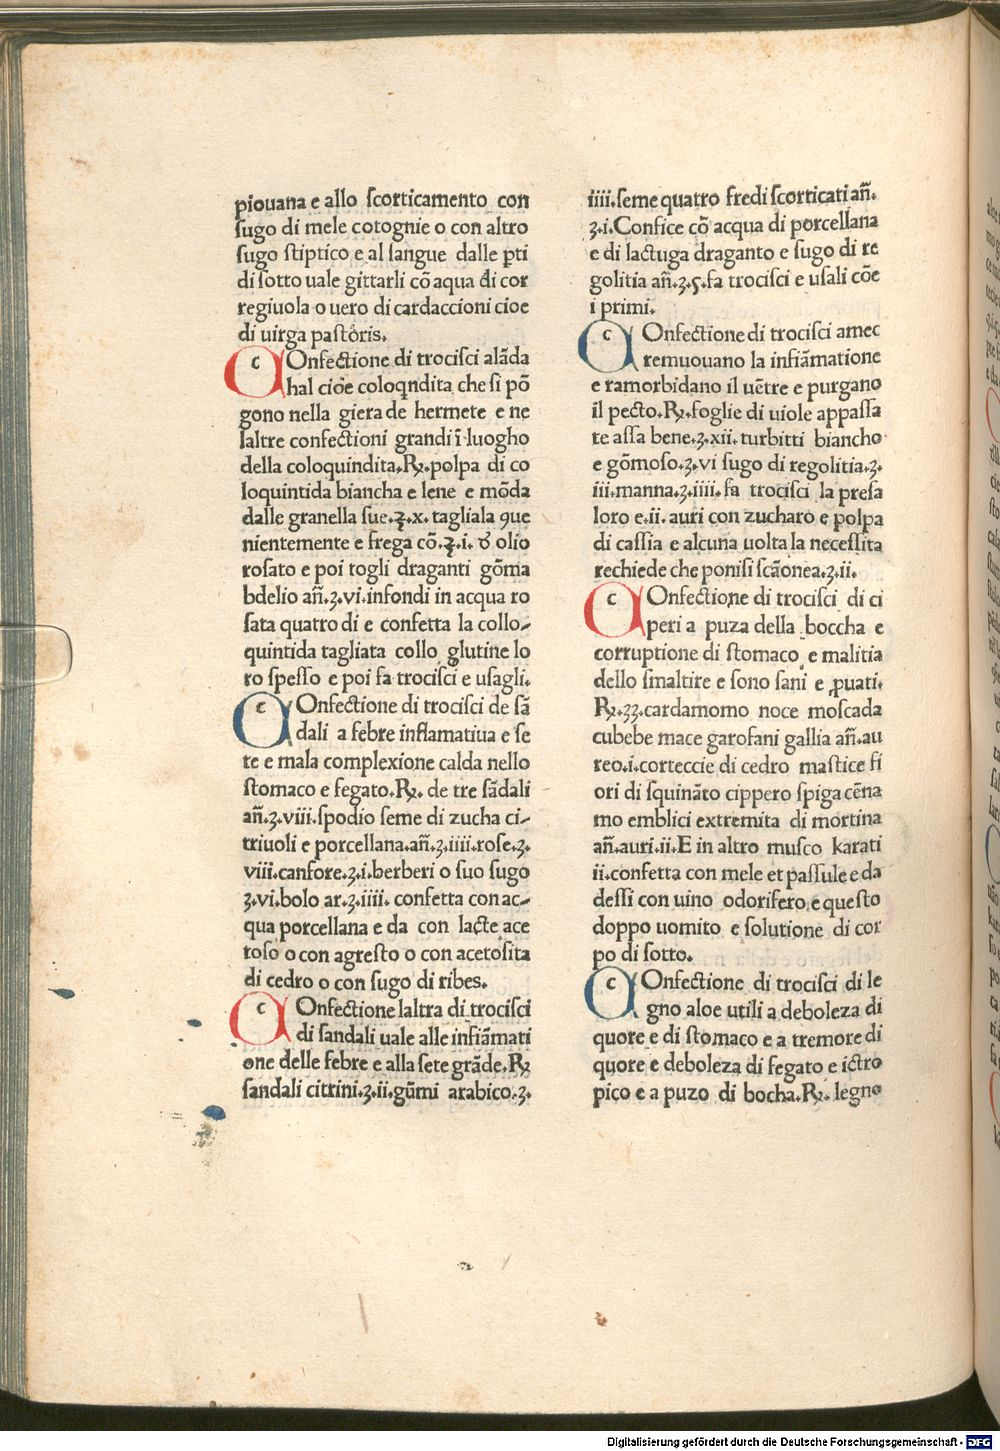 piouana e allo ſcorticamento con
ſugo di mele cotognie o con altro
ſugo ſtiptico e al ſangue dalle ꝑti
di ſotto uale gittarli cō aqua di cor
regiuola o uero di cardaccioni cioe
di uirga paſtoris.
COnfectione di trocisci alāda
hal cioe coloqndita che ſi pō
gono nella giera de hermete e ne
laltre confectioni grandi ī luogho
della coloquindita.℞.polpa di co
loquintida biancha e lene e mōda
dalle granella ſue.℥.x.tagliala ꝯue
nientemente e frega cō.℥.i. ð olio
roſato e poi togli draganti gōma
bdelio añ.ʒ.vi.infondi in acqua ro
ſata quatro di e confetta la collo-
quintida tagliata collo glutine lo
ro ſpeſſo e poi fa trociſci e uſagli.
COnfectione di trociſci de ſā
dali a febre inflamatiua e ſe
te e mala complexione calda nello
ſtomaco e fegato.℞. de tre ſādali
añ.ʒ.viii.ſpodio ſeme di zucha ci-
triuoli e porcellana.añ.ʒ.iiii.roſe.ʒ.
viii.canfore.ʒ.i.berberi o ſuo ſugo
ʒ.vi.bolo ar.ʒ.iiii. confetta con ac-
qua porcellana e da con lacte ace
toſo o con agreſto o con acetoſita
di cedro o con ſugo di ribes.
COnfectione laltra di trociſci
di ſandali uale alle infiāmati
one delle febre e alla ſete grāde.℞
ſandali citrini.ʒ.ii.gūmi arabico.ʒ.
iiii.ſeme quatro fredi ſcorticati añ.
ʒ.i.Confice cō acqua di porcellana
e di lactuga draganto e ſugo di re
golitia añ.ʒ.ʒ.fa trociſci e uſali cōe
i primi.
COnfectione di trociſci a mec
remuouano la infiāmatione
e ramorbidano il uētre e purgano
il pecto.℞.foglie di uiole appaſſa
te aſſa bene.ʒ.xii.turbitti biancho
e gōmoſo.ʒ.vi ſugo di regolitia.ʒ.
iii.manna.ʒ.iiii.fa trociſci la preſa
loro e.ii. auri con zucharo e polpa
di caſſia e alcuna uolta la neceſſita
rechiede che poniſi ſcāonea.ʒ.ii.
COnfectione di trociſci di ci
peri a puza della boccha e
corruptione di ſtomaco e malitia
dello ſmaltire e ſono ſani e ꝓuati.
℞.ʒʒ.cardamomo noce moſcada
cubebe mace garofani gallia añ.au
reo.i.corteccie di cedro maſtice fi
ori di ſquināto cippero ſpiga cēna
mo emblici extremita di mortina
añ.auri.ii.E in altro muſco karati
ii.confetta con mele et paſſule e da
deſſi con uino odorifero e queſto
doppo uomito e ſolutione di cor
po di ſotto.
COnfectione di trociſci di le
gno aloe utili a deboleza di
quore e di ſtomaco e a tremore di
quore e deboleza di fegato e ictro
pico e a puzo di bocha.℞. legno
Digitalisierung gefördert durch die Deutsche Forschungsgemeinschaft - DFG